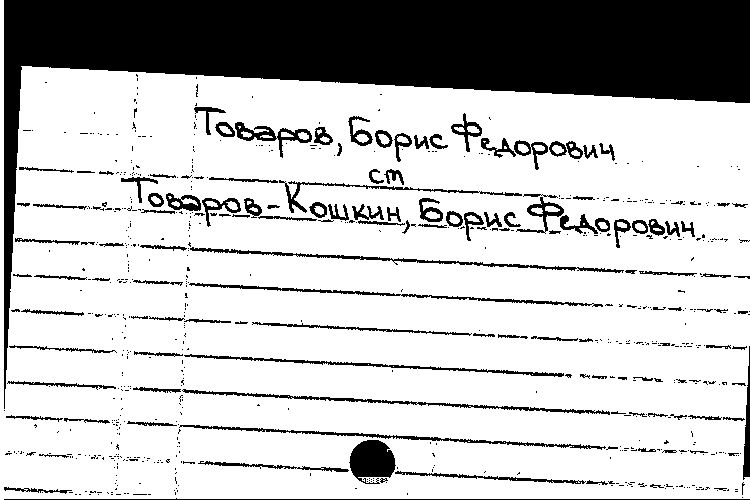 Товаров, Борис Федорович
ст
Товаров-Кошкин, Борис Федорович.